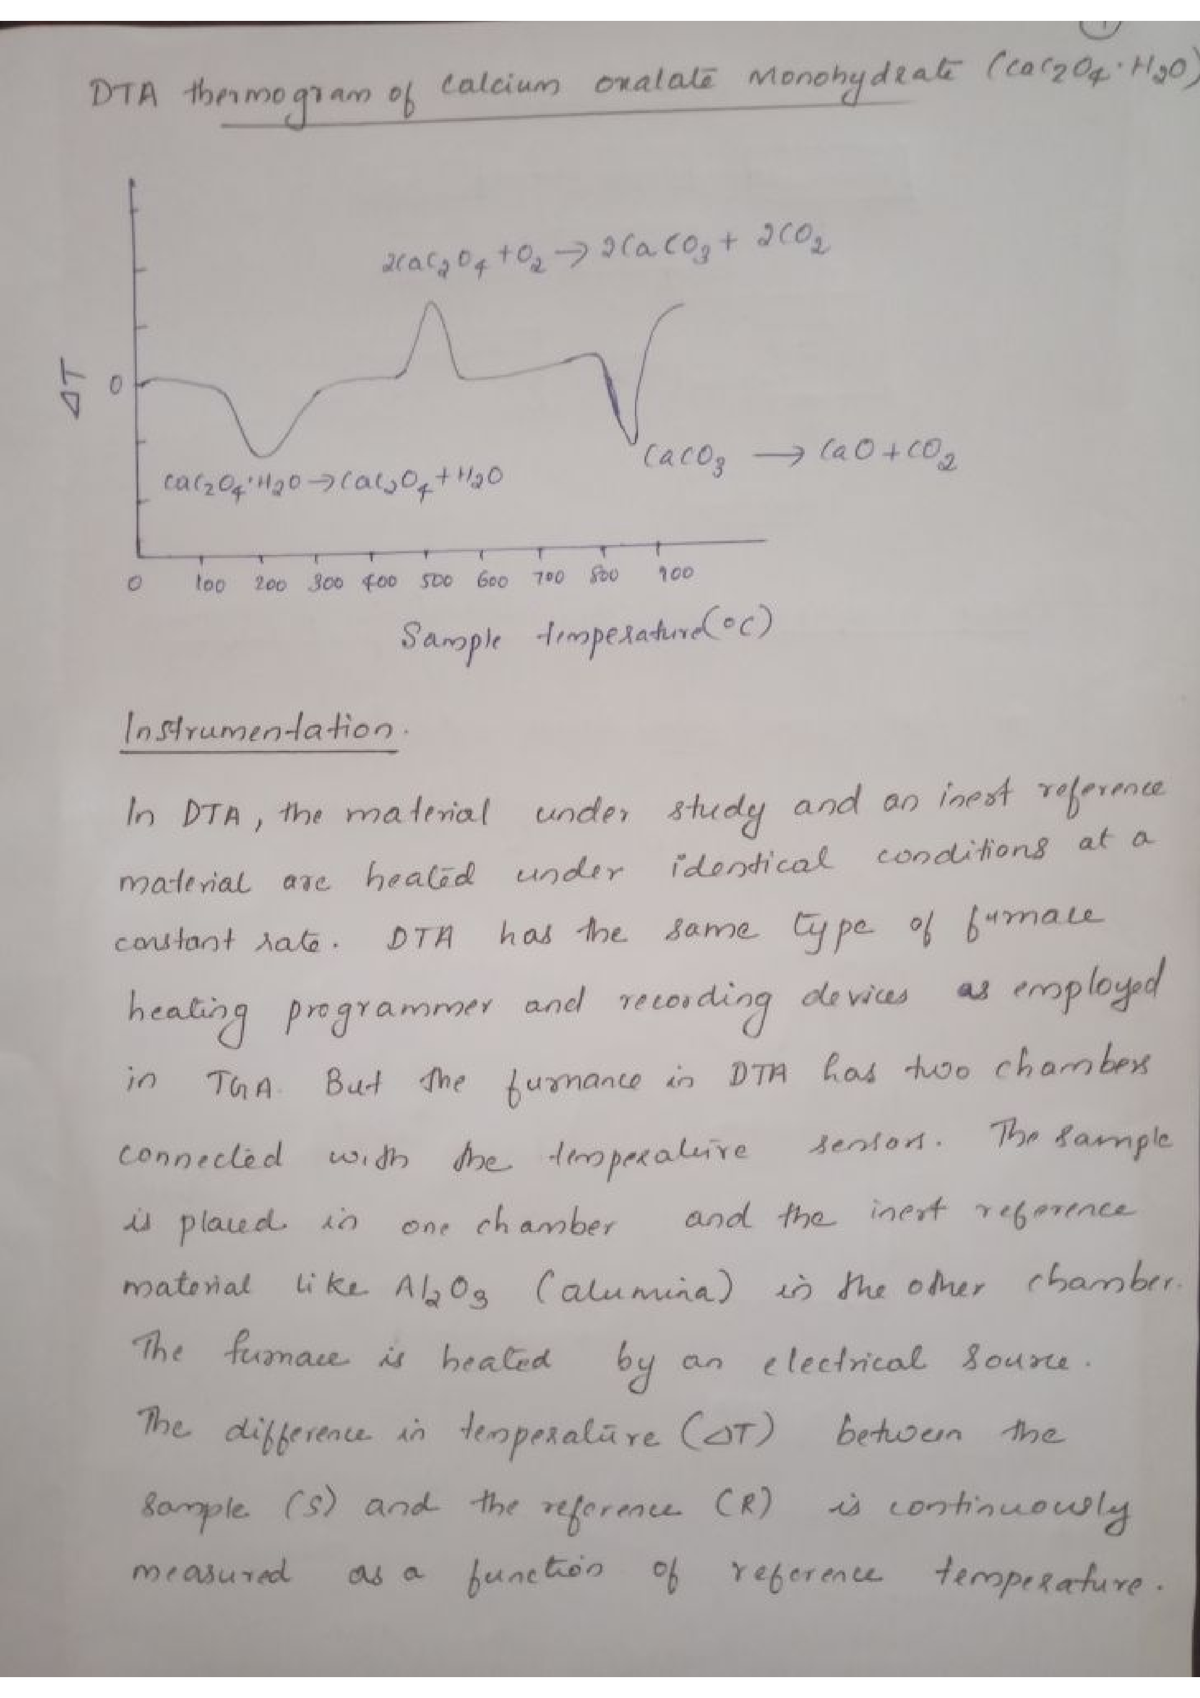 DTA thermogram of Calcium oxalate Monohydrate (CaC2O4·H2O)
2CaC2O4 + O2 → 2CaCO3 + 2CO2
ΔT
0
CaCO3 → CaO + CO2
CaC2O4·H2O → CaC2O4 + H2O
0 100 200 300 400 500 600 700 800 900
Sample temperature (°C)
Instrumentation.
In DTA, the material under study and an inert reference
material are heated under identical conditions at a
constant rate. DTA has the same type of furnace
heating programmer and recording devices as employed
in TGA. But the furnance in DTA has two chambers
connected with the temperature sensors. The sample
is placed in one chamber and the inert reference
material like Al2O3 (alumina) in the other chamber.
The furnace is heated by an electrical source.
The difference in temperature (ΔT) between the
sample (S) and the reference (R) is continuously
measured as a function of reference temperature.